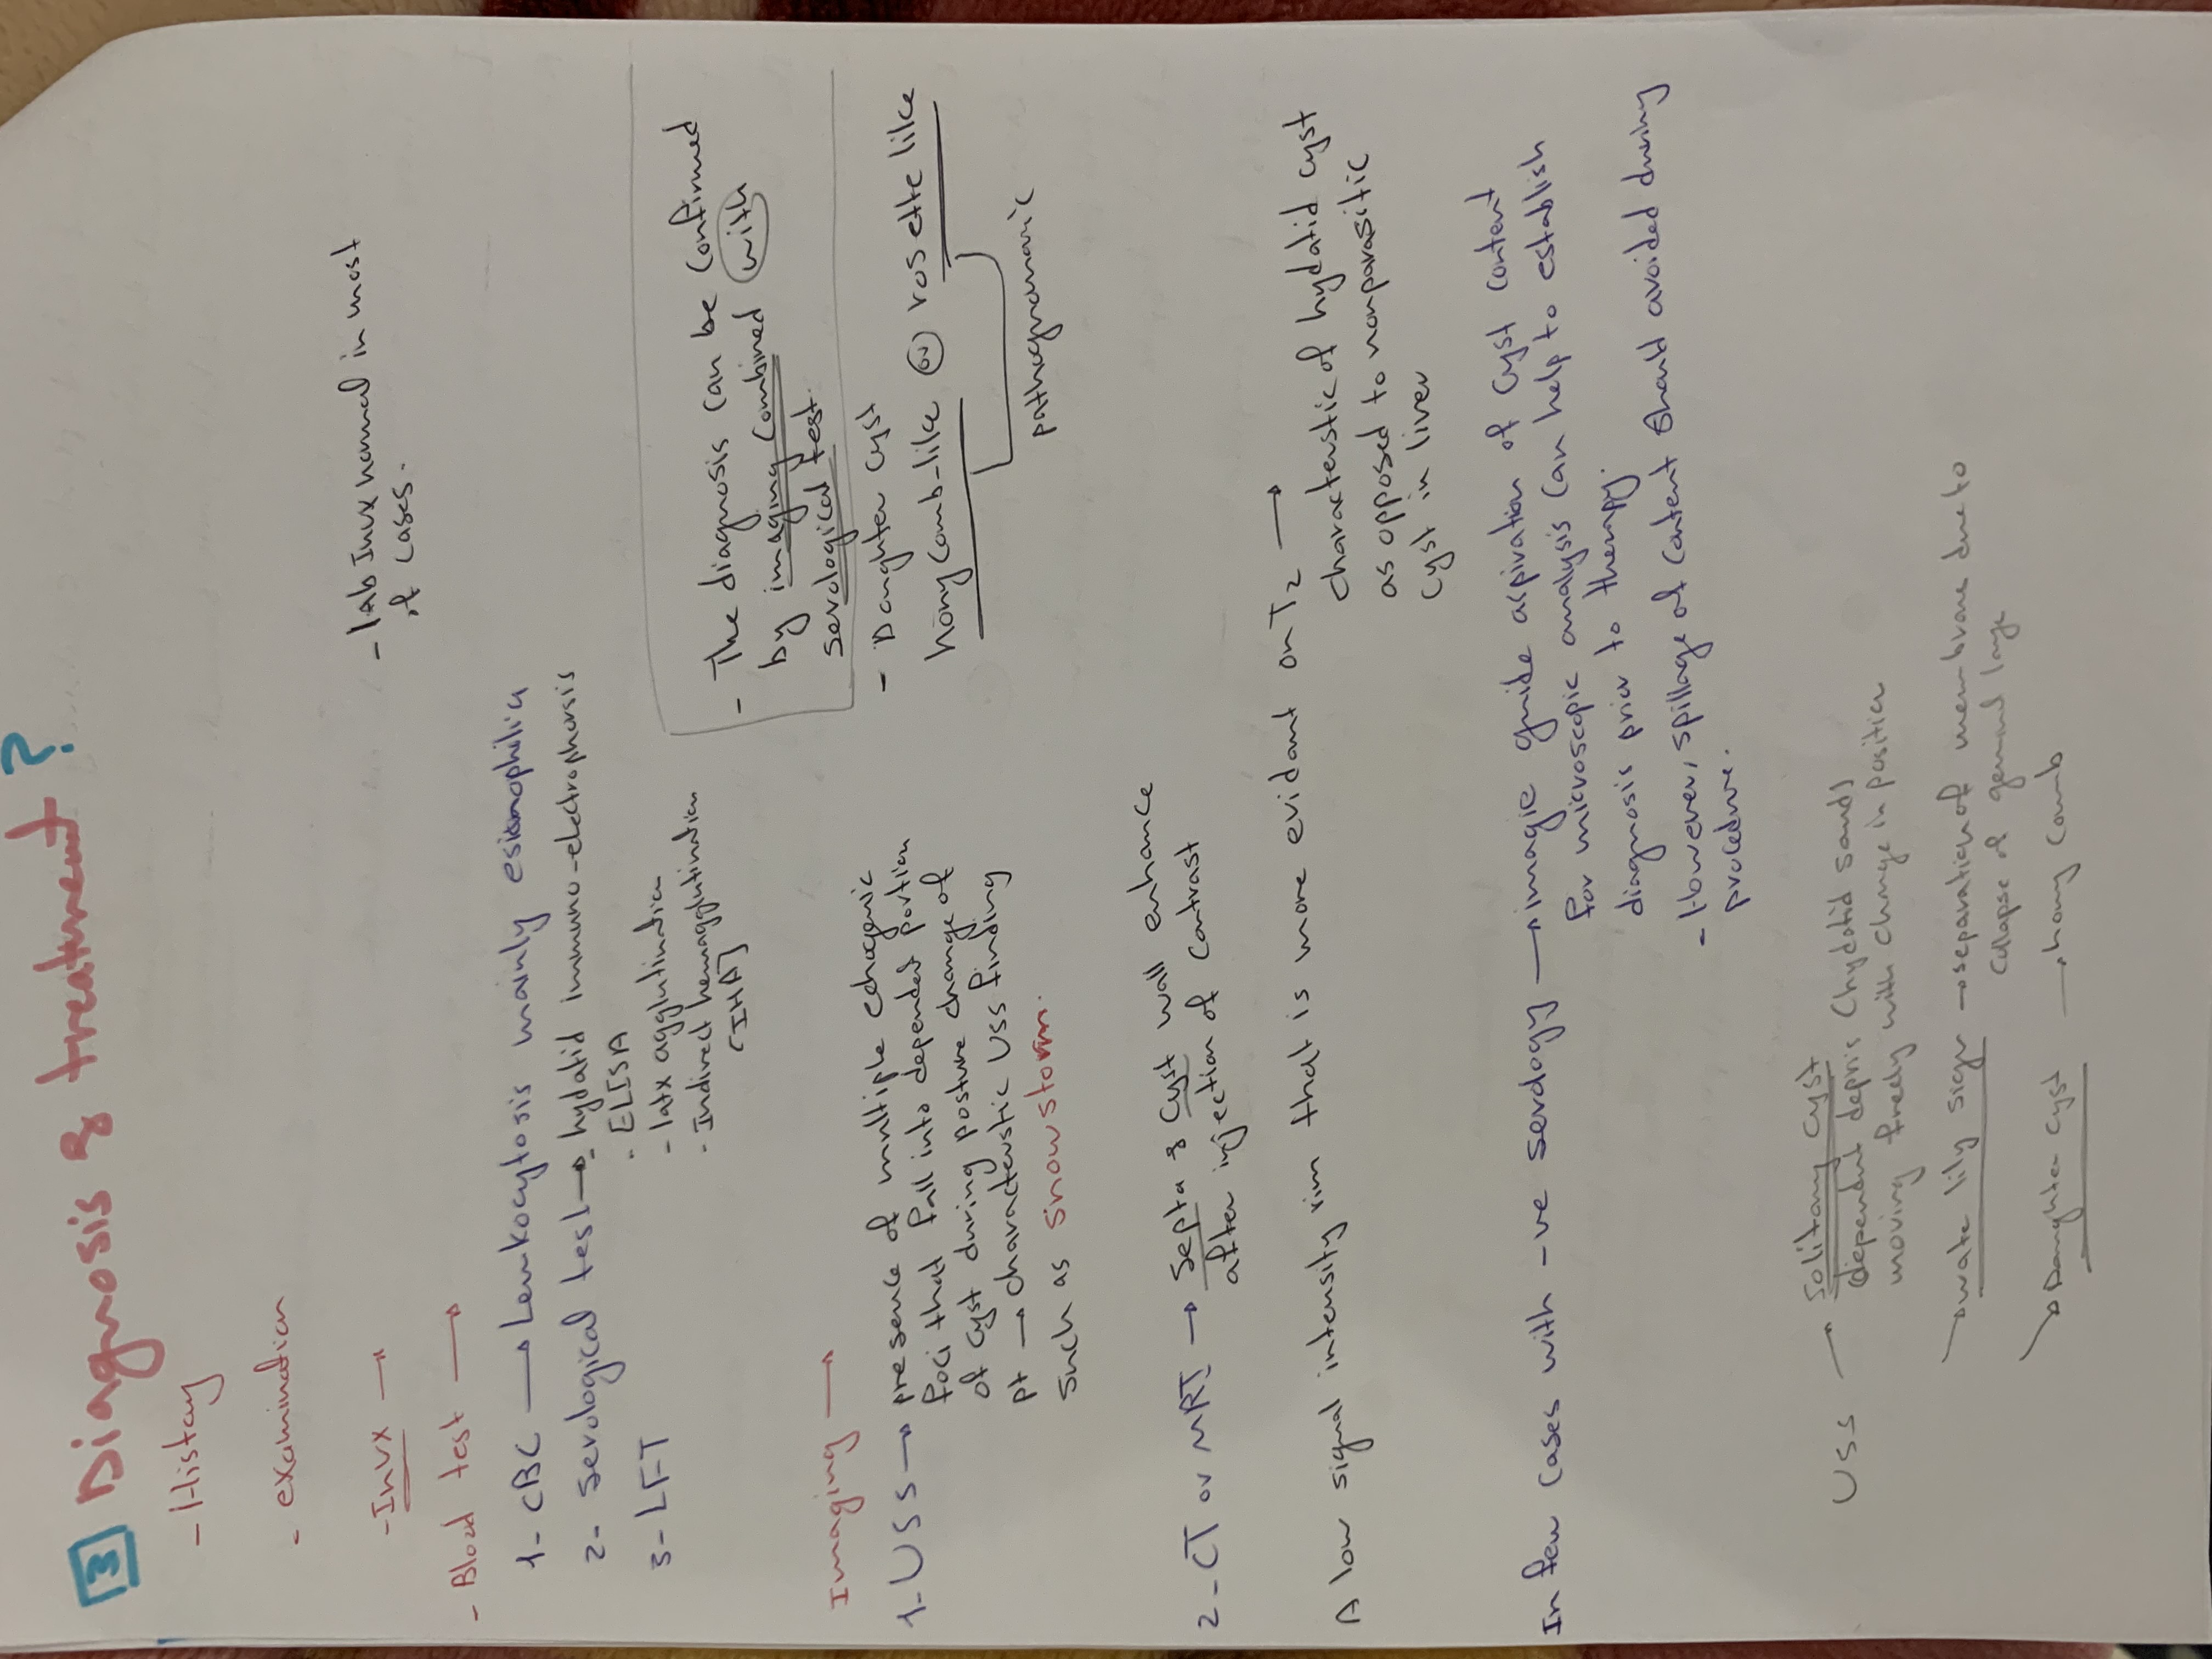 3 Diagnosis & treatment ?
- History
- examination
- Invx →
- lab Invx normal in most
of cases.
- Blood test →
1- CBC → Leukocytosis mainly esionophilia
2- serological test → hydatid immuno-electrophorsis
- ELISA
- latx agglutination
- Indirect hemagglutination
(IHA)
3- LFT
- The diagnosis can be confirmed
by imaging combined with
serological test.
- Daughter cyst
hony comb-like or rosette like
pathognomonic
Imaging →
1- USS → presence of multiple echogenic
foci that fall into dependent portion
of cyst during posture change of
pt → characterstic USS finding
such as snow storm.
2- CT or MRI → septa & cyst wall enhance
after injection of contrast
A low signal intensity rim that is more evidant on T2 →
characterstic of hydatid cyst
as opposed to nonparasitic
cyst in liver
In few cases with -ve serology → imagie guide aspiration of cyst content
for microscopic analysis can help to establish
diagnosis prior to therapy.
- However, spillage of content should avoided during
procedure.
USS → Solitary cyst
(dependent depris (hydatid sand)
moving freely with change in position
→ wate lily sign → separation of membrane due to
collapse of germinal laye
→ Daughter cyst → hony comb